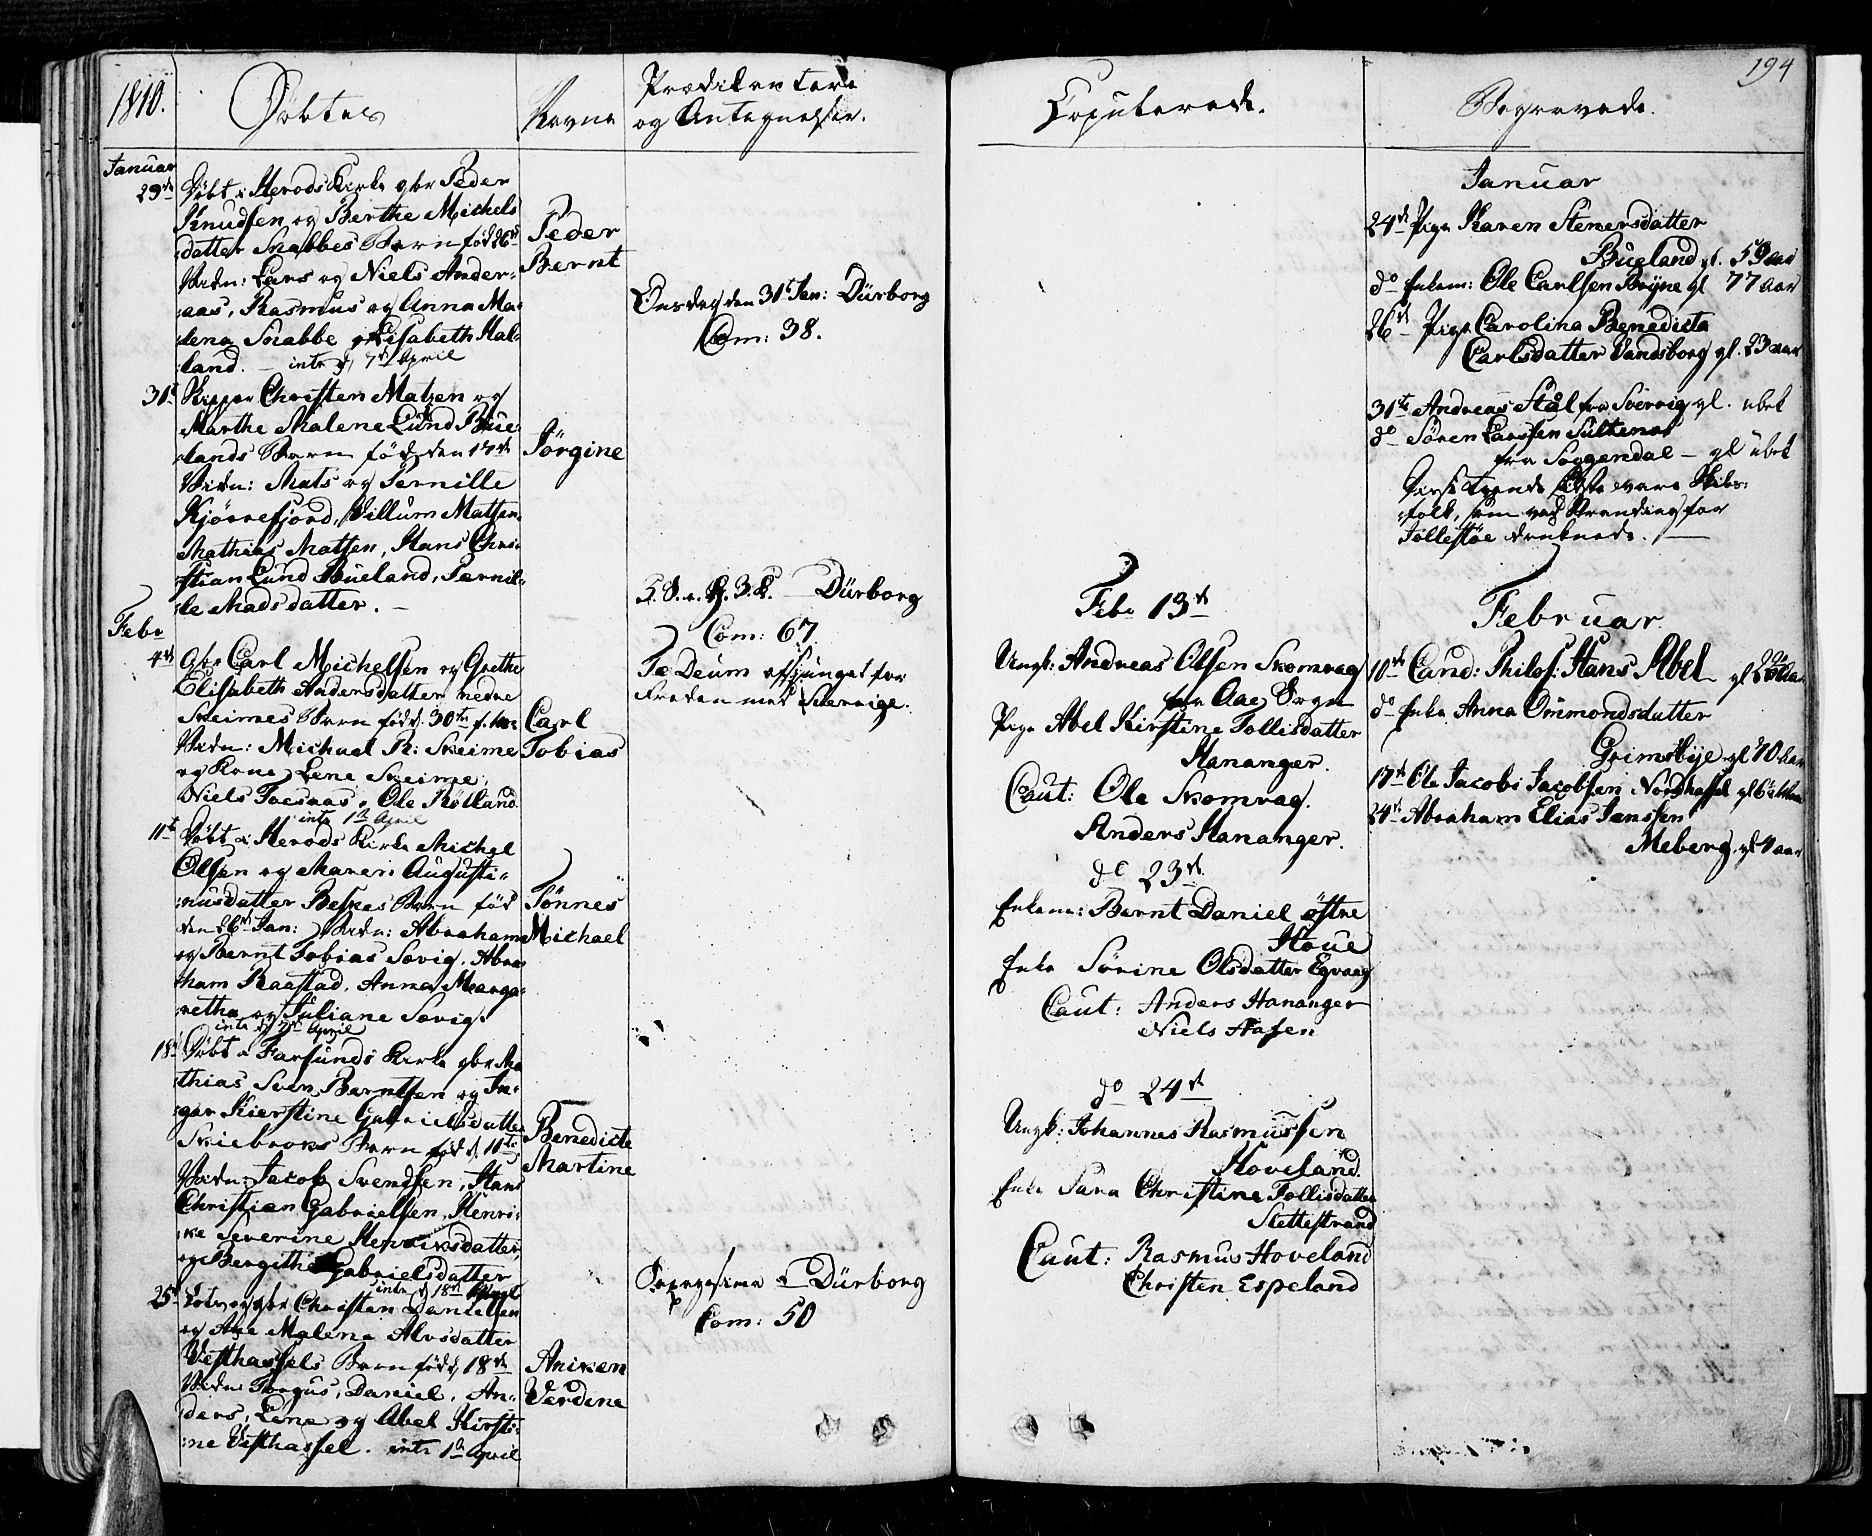 1810.
Döbte
Navne
Prædikantere
og Antegnelser.
Januar
29de Döbt i Herods Kirke gbr Peder
Knudsen og Berthe Michels
datter Snabbes Barn föd 26de
Vidn: Lars og Niels Ander-
aas, Rasmus og Anna Ma-
lena Snabbe og Elisabeth Hal-
land. intr d. 7de April
Peder
Bernt
Onsdag den 31te Jan: Dürborg
Com: 38.
31te Skipper Christen Matzen og
Marthe Malene Lund Bue-
lands Barn föd den 17de
Vidn: Mats og Pernille
Kjörrefjord, Villum Matsen
Mathias Matsen, Hans Chri-
stian Lund Bueland, Pernil-
le Madsdatter.
Jörgine
5. S. e. H. 3. K. Dürborg
Com: 67.
Te Deum afsjunget for
Freden med Sverrige.
Febr
4de Gbr Carl Michelsen og Grethe
Elisabeth Andersdatter nedre
Skeimes Barn föd d. 30te f. M.
Vidn: Michael R: Skeime
og Kone, Lene Skeime,
Niels Toesaas, Ole Rötland
intr 1te April
Carl
Tobias
11te Döbt i Herods Kirke Michel
Olsen og Maren Augusti-
nusdatter Besnes Barn föd
den 26de Jan: Vidn: Abraham
og Bernt Tobias Sævig, Abra-
ham Raastad, Anna Marga-
retha og Juliane Sævig.
intr d. 7de April
Tönnes
Michael
18de Döbt i Farsunds Kirke gbr Ma-
thias Sven Berntsen og In-
ger Kierstine Gabrielsdatter
Skiebroks Barn föd d. 11te
Vidn: Jacob Svendsen, Hans
Christian Gabrielsen, Henri-
ke Severine Henriksdatter,
og Bergithe Gabrielsdatter
intr d. 18de April
Benedicte
Martine
25de Christen Danielsen
og Ane Malena Alvsdatter
Vesthassels Barn föd d. 18de
Vidn: Torgus, Daniel, An-
ders, Lene og Abel Kirsti-
ne Vesthassel. intr 1te April
Aniken
Verdine
Sexagesima Dürborg
Com: 50
Copulerede.
Febr 13de
Ungk: Andreas Olsen Skomrag
fra Aae Sogn
Pige Abel Kirstine Tollisdatter
Hananger.
Caut: Ole Skomrag.
Anders Hananger.
do 23de
Enkem: Bernt Daniel östre
Houe
Enke Sörine Olsdatter Egvaag
Caut: Anders Hananger
Niels Aasen
do 24de
Ungk: Johannes Rasmussen
Hoveland
Enke Sara Christine Tollisdatter
Slettestrand
Caut: Rasmus Hoveland
Christen Espeland
194
Begravede.
Januar
24de Pige Karen Stenersdatter
Bueland gl. 59 aar
do Enkem: Ole Carlsen Bryne gl 77 aar
26de Pige Carolina Benedicta
Carlsdatter Vandsborg gl. 23 aar
31te Andreas Stål fra Sverrig gl. ubet
do Sören Larssen Sultenes
fra Soggendal - gl ubet
Disse tvende sidste vare Skibs-
folk, som ved Stranding for
Jollestöe druknede.
Februar
10de Cand: Philos: Hans Abel gl
do Enke Anna Ommondsdatter
Grimsbye gl 70 aar
17de Ole Jacobi Jacobsen Nordhassel gl 6
24de Abraham Elias Janssen
Meberg, gl 4 aar